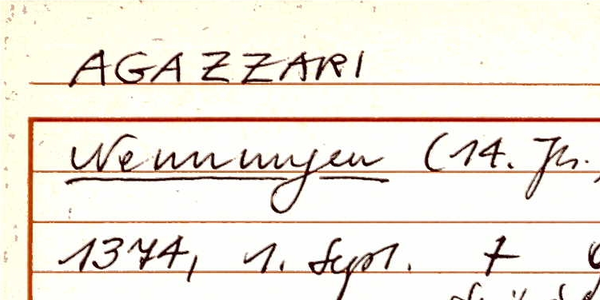 AGAZZARI
Nennungen (14. Jh.,
1374, 1. Sept. †